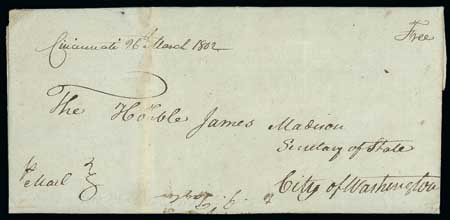 Cincinnati 26th March 1802
Free
The Honble James Madison
Secretary of State
City of Washington
Mail